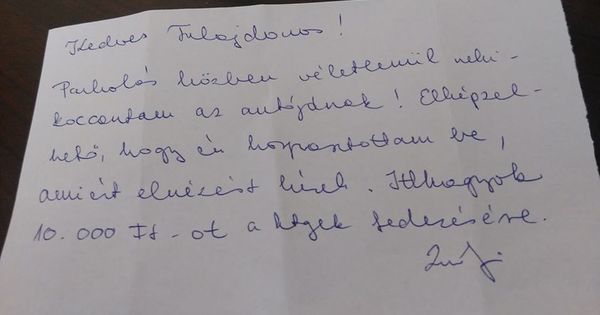 Kedves Tulajdonos!
Parkolás közben véletlenül neki-
koccantam az autójának! Elképzel-
hető, hogy én horpasztottam be,
amiért elnézést kérek. Itthagyok
10.000 Ft-ot a károk fedezésére.